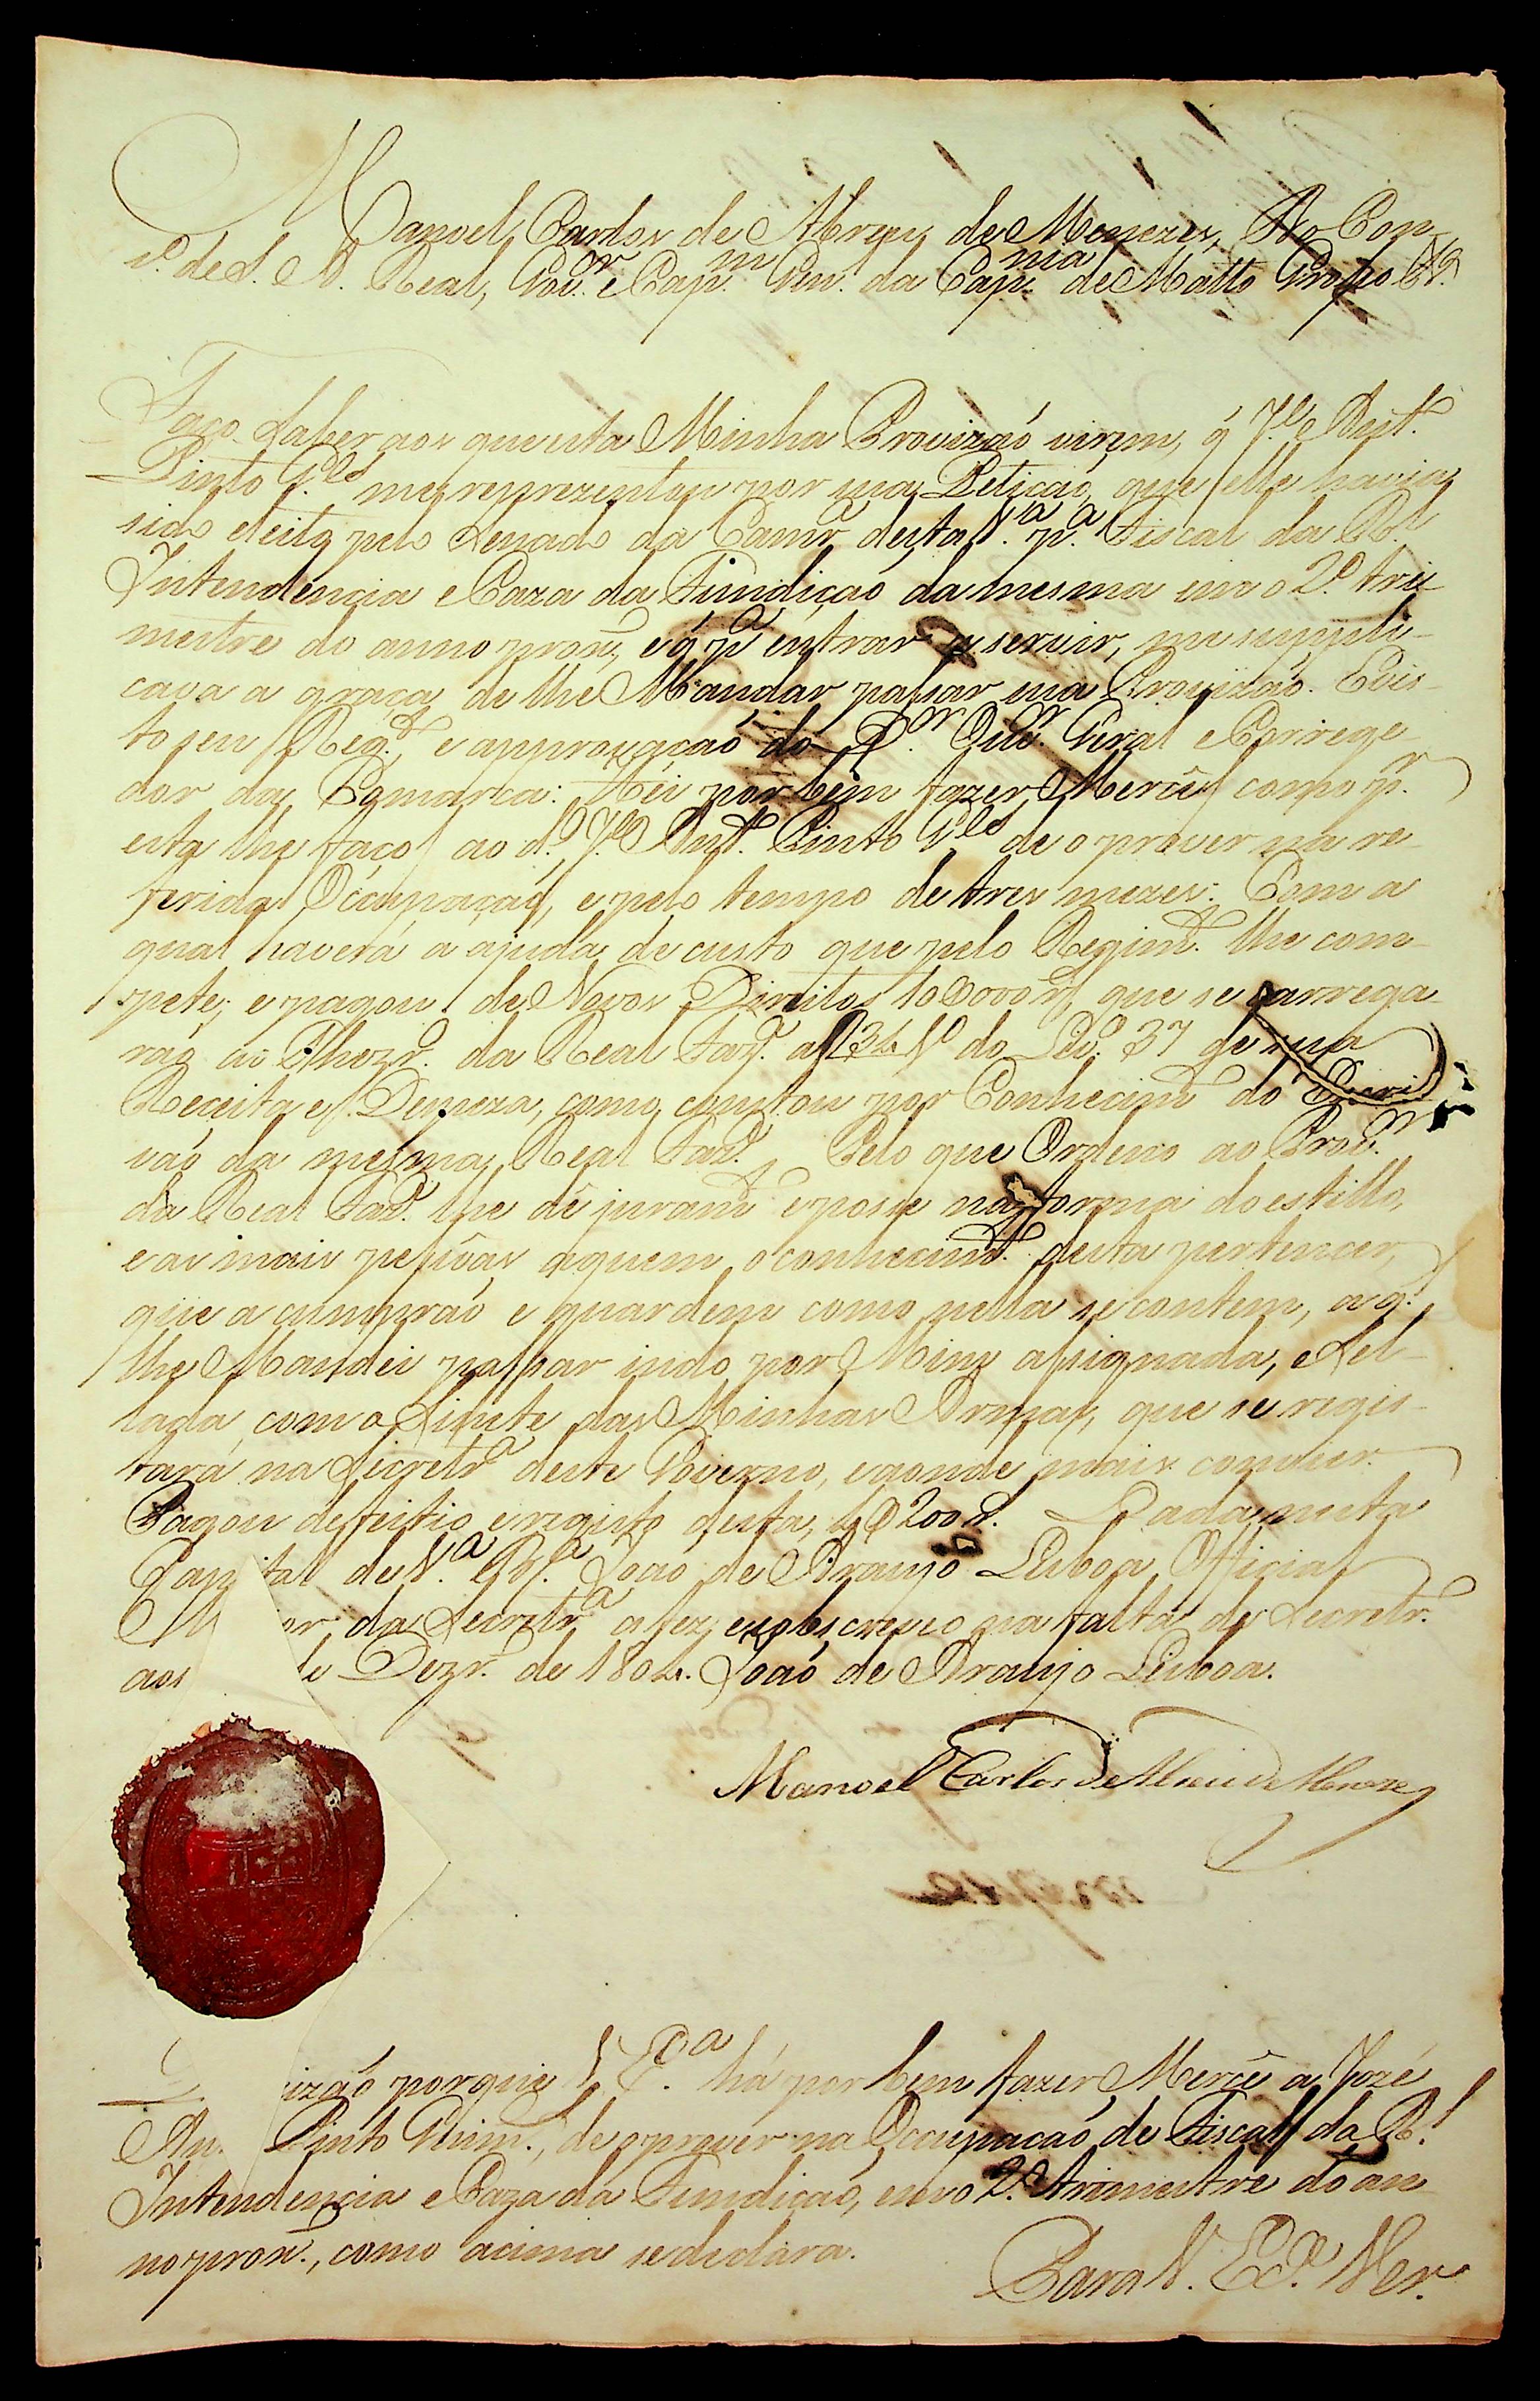 Manoel Carlos de Abreu de Menezes, Do Con-
s.º de S. A. Real, Gov.or e Cap.m Gen. da Cap.nia de Matto Grosso &ª
Faço saber aos que esta Minha Provizaõ virem, q̃ J.e Ant.º
Pinto G.es me reprezentou por sua Petiçaõ, que elle havia
sido eleito pelo Senado da Camr.a desta V.a p.a Fiscal da R.l
Intendencia e Caza da Fundiçaõ da mesma em o 2.º trí-
mestre do anno prox., e q̃ p.a entrar a servir, me suppli-
cava a graça de lhe Mandar passar sua Provizão. E vis-
to seu Req.to, e approvaçaõ do D.or Ouv.or Geral e Correge-
dor da Comarca: Hei por bem fazer Mercê (como p.r
esta lhe faço) ao d.º J.e Ant.º Pinto G.es de o prover na re-
ferida Occupaçaõ, e pelo tempo de tres mezes: Com a
qual haverá a ajuda de custo que pelo Regim.to lhe com-
pete; e pagou de Novos Direitos 10$000 r.s que se carrega-
raõ ao Thezr.º da Real Faz.a a f 134 V.º do Liv.º 37 de sua
Receita e Despeza, como constou por Conhecim.to do Escri-
vaõ da mesma Real Faz.a Pelo que Ordeno ao Prov.or
da Real Faz.a lhe dê juram.to e posse na forma do estillo,
e as mais pessôas aquem o conhecim.to desta pertencer,
que a cumpraõ e guardem como nella se contem, a q.l
lhe Mandei passar indo por Mim assignada, e Sel-
lada com o Sinete das Minhas Armas, que se regis-
tará na Secretr.a deste Governo, e aonde mais convier.
Pagou de feitio e registo desta, 4$200 r. Dada nesta
Capital de V.a B.a Joaõ de Araujo Lisboa Official
M or da Secretr.a a fez, e sobscreveo na falta de Secretr.º
aos de Dezr.º de 1804. Joaõ de Araujo Lisboa.
Manoel Carlos de Abreu de Menezes
izaõ porque V. Ex.a há por bem fazer Mercê a Jozé
An. Pinto Guim.es, de o prover na Occupacaõ de Fiscal da R.l
Intendencia e Caza da Fundicaõ, em o 2.º trimestre do an-
no prox.º, como acima se declara.
Para V. Ex.a Ver.